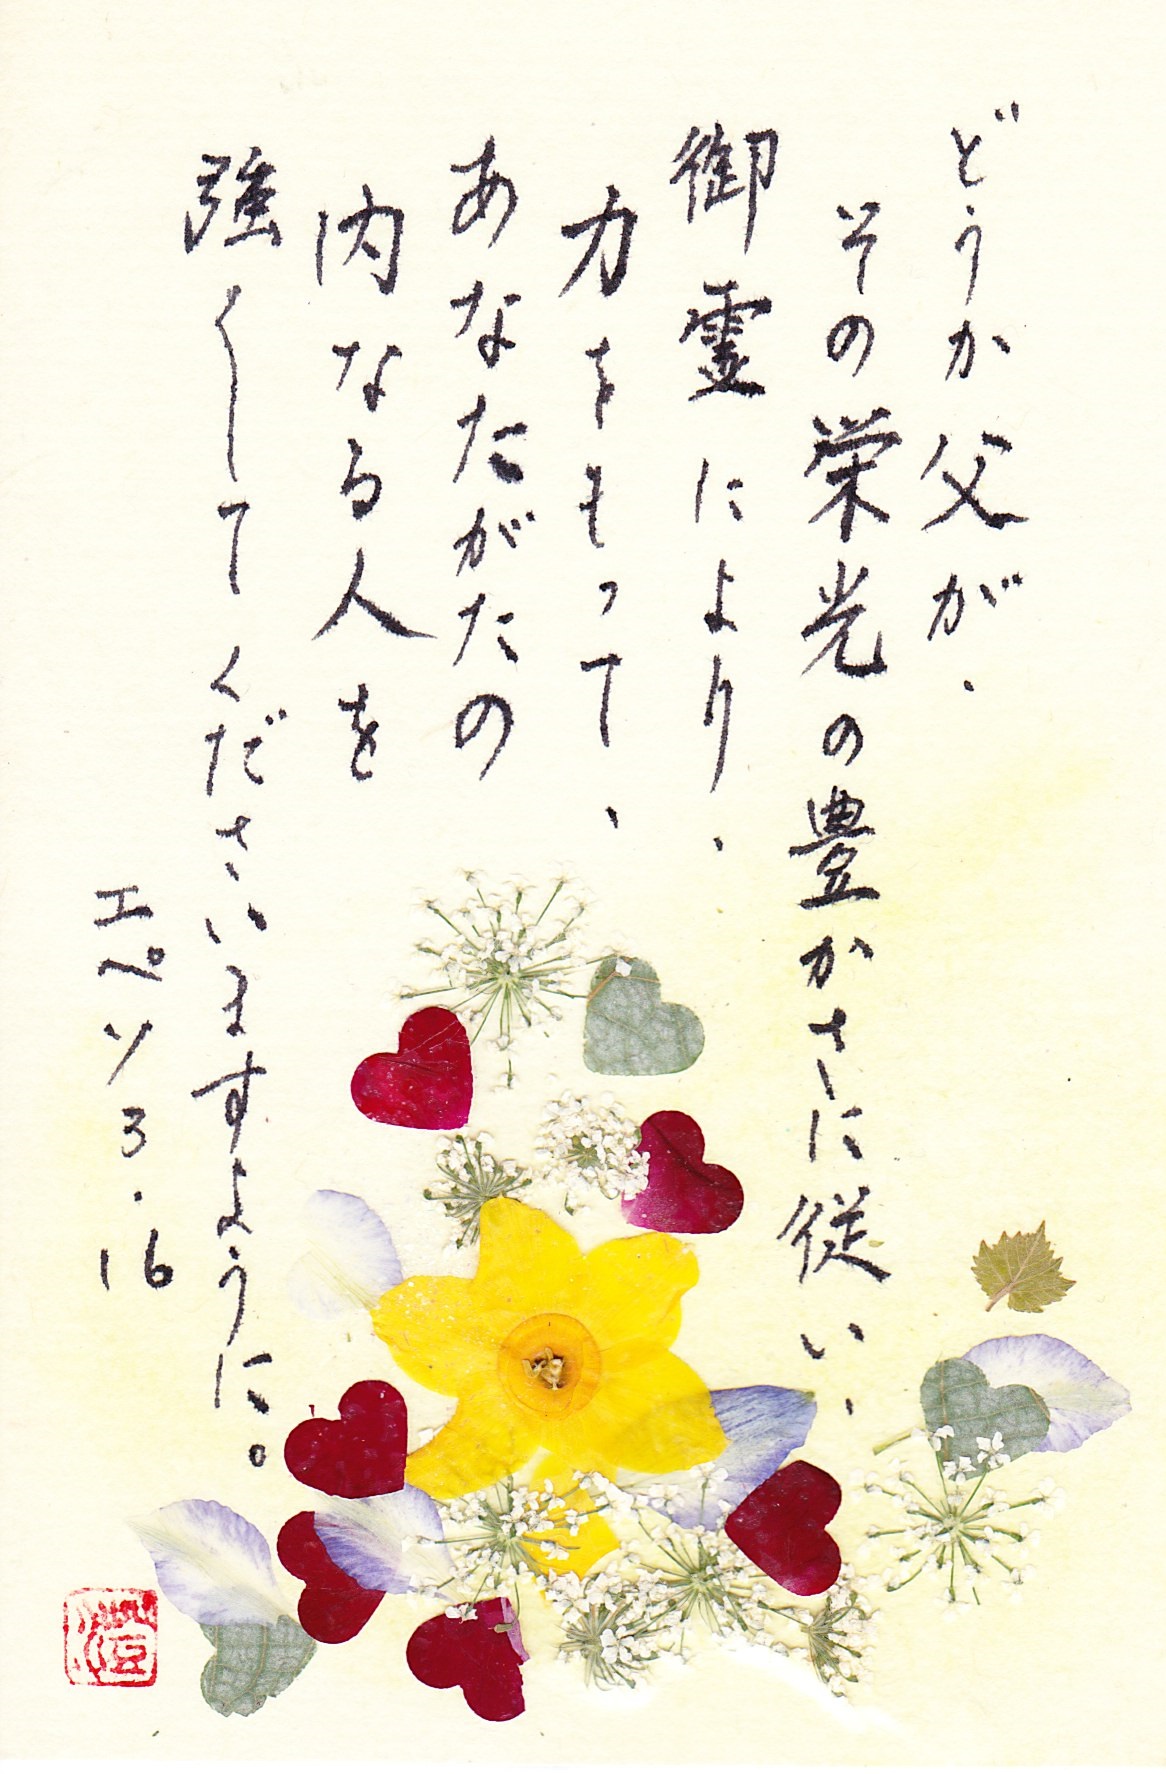 どうか父が、
その栄光の豊かさに従い、
御霊により、
力をもって、
あなたがたの
内なる人を
強くしてくださいますように。
エペソ3.16
澄